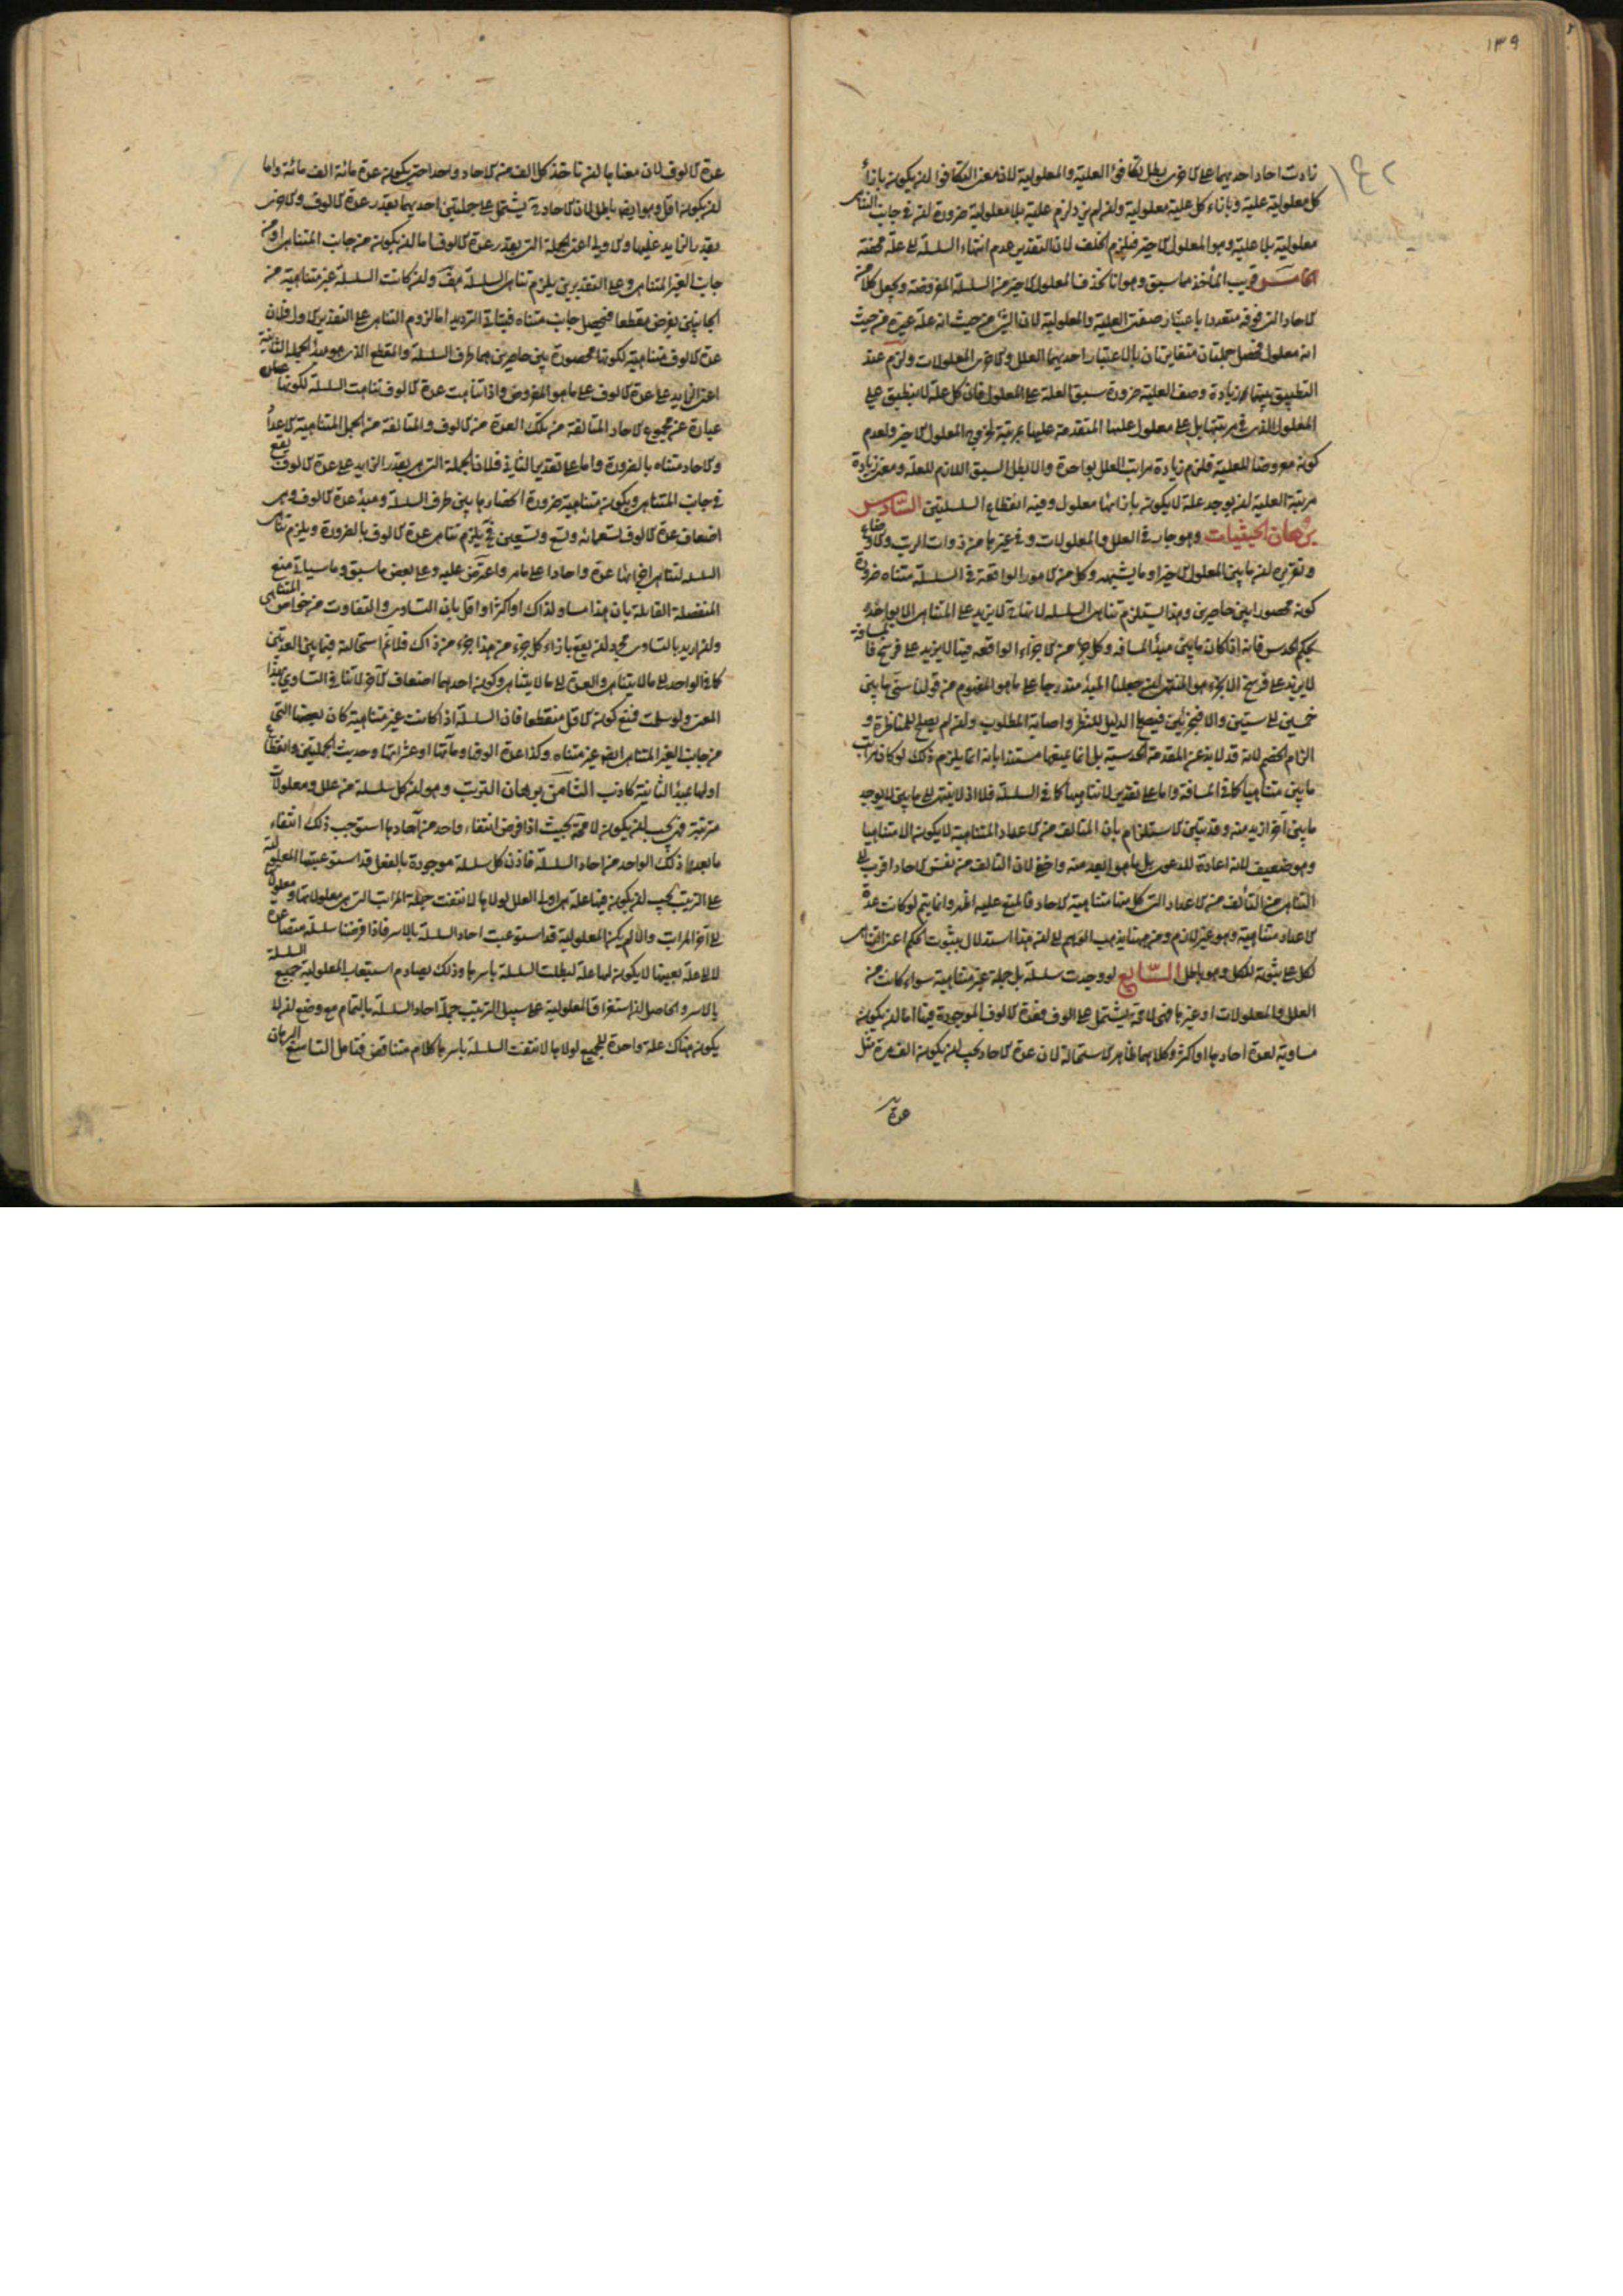 ١٣٩
١٤٢
زادت احاد احديهما على الاخرى بطل تكافؤ العلية والمعلولية لان معنى التكافؤ ان يكون بازاء
كل معلولية علية وبازاء كل علية معلولية وان لم يزد لزم علية بلا معلولية ضرورة ان في جانب التناهى
معلولية بلا علية وهو المعلول الاخير فيلزم الخلف لان التقدير عدم انتهاء السلسلة الى علة محضة
الخامس قريب المأخذ مما سبق وهو انا نحذف المعلول الاخير من السلسلة المفروضة ونجعل كلا من
الاحاد التى فوقه متعددا باعتبار صفتى العلية والمعلولية لان الشئ من حيث انه علة غيره من حيث
انه معلول فحصل جملتان متغايرتان بالاعتبار احديهما العلل والاخرى المعلولات ولزم عند
التطبيق بينهما زيادة وصف العلية ضرورة سبق العلة على المعلول فان كل علة لا ينطبق على
المعلول الذى فى مرتبتها بل على معلول علتها المتقدمة عليها بمرتبة لخروج المعلول الاخير ولعدم
كونه معروضا للعلية فلزم زيادة مراتب العلل بواحدة والا بطل السبق اللازم للعلة ومعنى زيادة
مرتبة العلية ان يوجد علة لا يكون بازائها معلول وفيه انقطاع السلسلتين السادس
برهان الحيثيات وهو جار فى العلل والمعلولات وفى غيرها من ذوات الترتيب والاوضاع
وتقريره ان ما بين المعلول الاخير او ما يشبهه وكل من الامور الواقعة فى السلسلة متناه ضرورة
كونه محصورا بين حاصرين وهذا يستلزم تناهى السلسلة لانها ح لا يزيد على المتناهى الا بواحد
بحكم الحدس فانه اذا كان ما بين مبدأ المسافة وكل جزء من الاجزاء الواقعة فيها لا يزيد على فرسخ فالمسافة
لا يزيد على فرسخ الا بجزء هو المنتهى ان جعلنا المبدأ مندرجا على ما هو المفهوم من قولنا سنى ما بين
خمسين الى ستين والا فبجزئين فيصلح الدليل للنظر واصابة المطلوب وان لم يصلح للمناظرة و
الزام الخصم لانه قد لا يذعن المقدمة الحدسية بل انما يمنعها مستندا بانه انما يلزم ذلك لو كان مراتب
ما بين متناهيا كما فى المسافة واما على تقدير لا تناهيها كما فى السلسلة فلا اذ لا ينتهى الى ما بين لا يوجد
ما بين آخر ازيد منه وقد يبين الاستلزام بان المتالف من الاعداد المتناهية لا يكون الا متناهيا
وهو ضعيف لانه اعادة للدعوى بل ما هو ابعد منه واخفى لان التالف من نفس الاحاد اقرب الى
التناهى من التألف من الاعداد التى كل منها متناهية الاحاد فالمنع عليه اظهر وانما يتم لو كانت عدة
الاعداد متناهية وهو غير لازم ومن ههنا يذهب الوهم الى ان هذا استدلال بثبوت الحكم اعنى التناهى
لكل على ثبوته للكل وهو باطل السابع لو وجدت سلسلة بل جملة غير متناهية سواء كانت من
العلل والمعلولات او غيرها فهى لامحة يشتمل على الوف فعدة الالوف الموجودة فيها اما ان يكون
مساوية لعدة احادها او اكثر وكلاهما ظاهر الاستحالة لان عدة الاحاد يجب ان يكون الف مرة مثل
عدة
عدة الالوف لان معناها ان ناخذ كل الف من الاحاد واحدا حتى يكون عدة مائة الف مائة واما
ان يكون اقل وهو ايضا باطل لان الاحاد ح يشتمل على جملتين احديهما بقدر عدة الالوف والاخرى
بقدر الزايد عليها والاولى اعنى الجملة التى بقدر عدة الالوف اما ان يكون من جانب المتناهى او من
جانب الغير المتناهى وعلى التقديرين يلزم تناهى السلسلة هف وان كانت السلسلة غير متناهية من
الجانبين يفرض مقطعا فيحصل جانب متناه فيتاتى الترديد اما لزوم التناهى على التقدير الاول فلان
عدة الالوف متناهية لكونها محصورة بين حاصرين هما طرف السلسلة والمقطع الذى هو مبدأ الجملة الثانية
اعنى الزايد على عدة الالوف على ما هو المفروض واذا تناهت عدة الالوف تناهت السلسلة لكونها عبارة
عبارة عن مجموع الاحاد المتالفة من تلك العدة من الالوف والمتالفة من الجمل المتناهية الاعداد
والاحاد متناه بالضرورة واما على تقدير الثانى فلان الجملة التى بقدر الزايد على عدة الالوف يقع
فى جانب المتناهى ويكون متناهية ضرورة انحصارها بين طرف السلسلة ومبدأ عدة الالوف وهى
اضعاف عدة الالوف تسعمائة وتسع وتسعين مرة فيلزم تناهى عدة الالوف بالضرورة ويلزم تناهى
السلسلة لتناهى اجزائها عدة واحادا على ما مر واعترض عليه وعلى بعض ما سبق وما سياتى منع
المنفصلة القائلة بان هذا مساو لذاك او اكثر او اقل بان التساوى والتفاوت من خواص المتناهى
وان اريد بالتساوى مجرد ان يقع بازاء كل جزء من هذا جزء من ذاك فلانم استحالته فيما بين العدتين
كما فى الواحد الى ما لا يتناهى والعشرة الى ما لا يتناهى وكون احدهما اضعاف الاخر لا ينافى التساوى بهذا
المعنى ولو سلمت فنمنع كون الاقل منقطعا فان السلسلة اذا كانت غير متناهية كان بعضها التى
من جانب الغير المتناهى ايضا غير متناه وكذا عدة الوفها ومآتها او عشراتها وحديث الجملتين وانقطاع
اوليهما بمبدأ الثانية كاذب الثامن برهان الترتب وهو ان كل سلسلة من علل ومعلولات
مترتبة فهى يجب ان يكون لا محة بحيث اذا فرض انتفاء واحد من آحادها استوجب ذلك انتفاء
ما بعد ذلك الواحد من احاد السلسلة فاذن كل سلسلة موجودة بالفعل قد استوعبتها المعلولية
على الترتيب يجب ان يكون فيها علة هى اولى العلل لولاها لانتفت جملة المراتب التى هى معلولاتها ومعلولات
الى آخر المراتب والا لم يكن المعلولية قد استوعبت احاد السلسلة بالاسر فاذا فرضنا سلسلة متصاعدة
لا الى علة بعينها لا يكون لها علة لبطلت السلسلة باسرها وذلك يصادم استيعاب المعلولية جميع السلسلة
بالاسر والحاصل ان استغراق المعلولية على سبيل الترتيب جملة احاد السلسلة بالتمام مع وضع ان لا
يكون هناك علة واحدة للجميع لولاها لانتفت السلسلة باسرها كلام متناقض فتامل التاسع البرهان